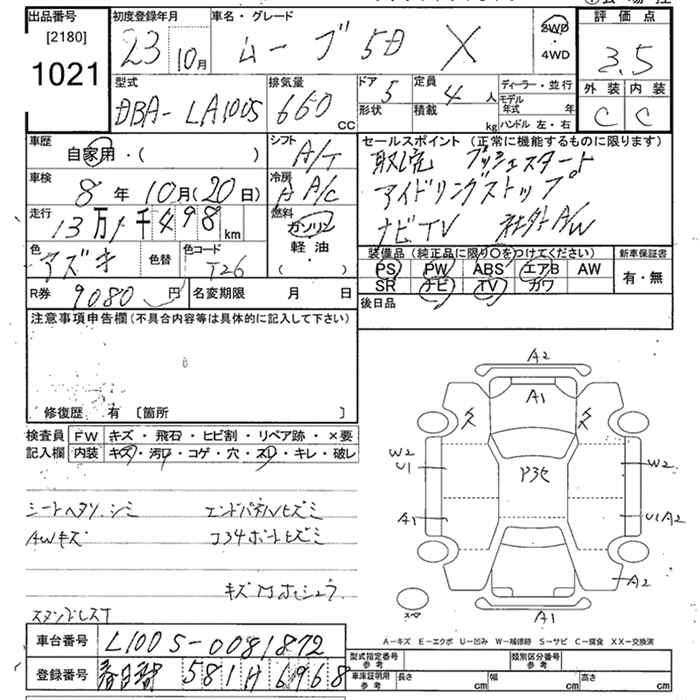 出品番号 初度登録年月 車名・グレード 評価点
[2180]
1021
23 10月 ムーブ 5D X 2WD・4WD 3.5
型式 排気量 ドア 定員 ディーラー・並行 外装 内装
DBA-LA100S 660 CC 5 4人 モデル年式 年 C C
形状 積載 kg ハンドル 左・右
車歴 シフト セールスポイント (正常に機能するものに限ります)
自家用・( ) A/T
取説 プッシュスタート
車検 冷房 アイドリングストップ
8年10月(20日) A A/C
走行 燃料 ナビTV 社外A/W
13万1千498km ガソリン・軽油・( )
色 色替 色コード
アズキ T26
装備品 (純正品に限り○をつけてください) 新車保証書
PS PW ABS エアB AW 有・無
SR ナビ TV カワ
R券 9080円 名変期限 月 日 後日品
注意事項申告欄(不具合内容等は具体的に記入して下さい)
修復歴 有 〔箇所 〕
検査員 FW キズ・飛石・ヒビ割・リペア跡・×要
記入欄 内装 キズ・汚レ・コゲ・穴・スレ・キレ・破レ
シートヘタリ.シミ エンドパネルヒズミ
AWキズ コ34ボートヒズミ
スタンドレスT
車台番号 L100S-0081872
登録番号 春日部 581 H 6968
A2
A1
W2
U1
W2
A1
U1A2
A2
A1
スペ
A-キズ E-エクボ U-凹み W-補修跡 S-サビ C-腐食 XX-交換済
型式指定番号 参考 類別区分番号 参考
車庫証明用 参考 長さ cm 幅 cm 高さ cm